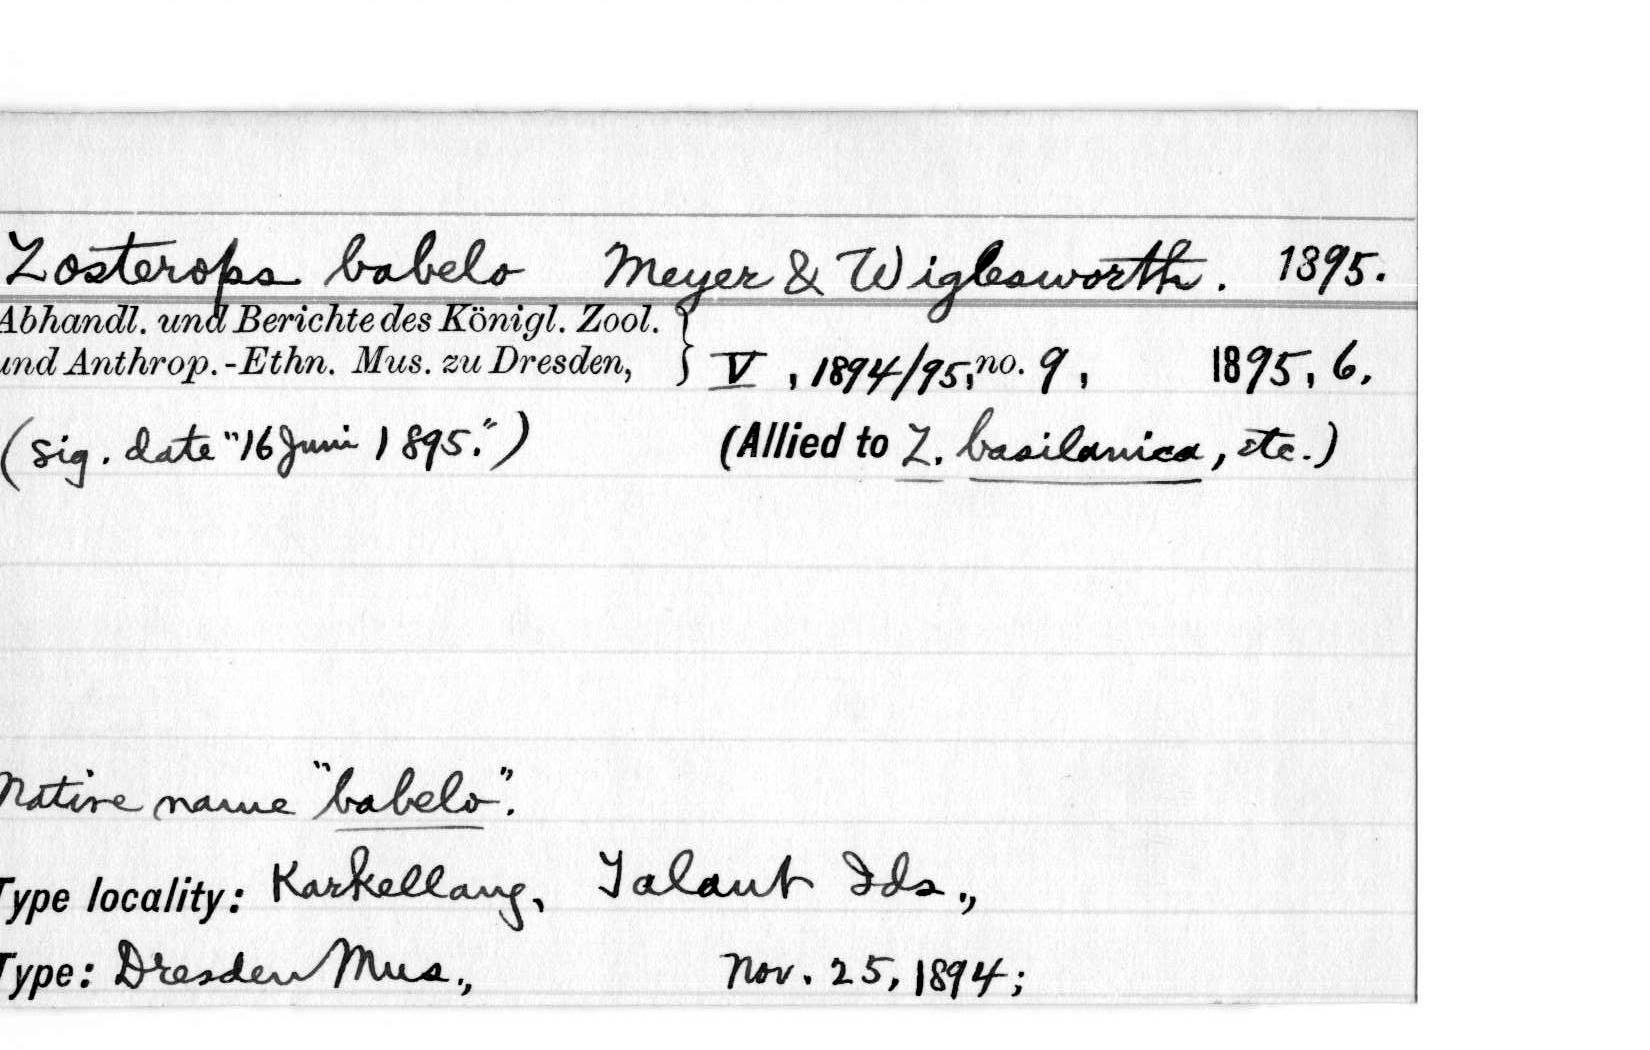 Zosterops babelo Meyer & Wiglesworth. 1895.
Abhandl. und Berichte des Königl. Zool.
und Anthrop.-Ethn. Mus. zu Dresden, } V, 1894/95, no. 9, 1895, 6.
(sig. date "16 Juni 1895.") (Allied to Z. basilanica, etc.)
Native name "babelo".
Type locality: Karkellang, Talaut Ids.,
Type: Dresden Mus., Nov. 25, 1894;